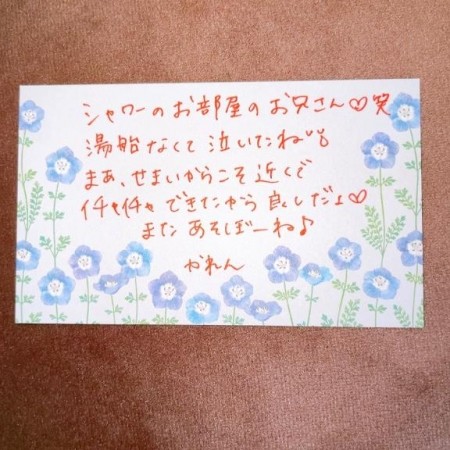 シャワーのお部屋のお兄さん♡笑
湯船なくて泣いたね
まあ、せまいからこそ近くで
イチャイチャできたから良しだよ♡
またあそぼーね♪
かれん